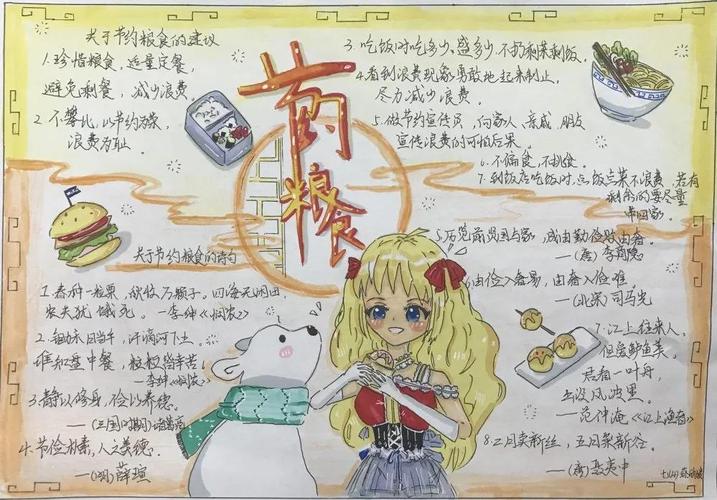 关于节约粮食的建议
1.珍惜粮食,适量定餐,
避免剩餐,减少浪费。
2.不攀比,以节约为荣,
浪费为耻。
节约
粮食
3.吃饭时吃多少,盛多少,不扔剩菜剩饭。
4.看到浪费现象勇敢地起来制止,
尽力减少浪费。
5.做节约宣传员,向家人、亲戚、朋友
宣传浪费的可怕后果。
6.不偏食,不挑食。
7.到饭店吃饭时,点饭点菜不浪费,若有
剩余的要尽量
带回家。
关于节约粮食的诗句
1.春种一粒粟,秋收万颗子。四海无闲田,
农夫犹饿死。—李绅《悯农》
2.锄禾日当午,汗滴禾下土。
谁知盘中餐,粒粒皆辛苦。
—李绅《悯农》
3.静以修身,俭以养德。
——(三国时期)诸葛亮
4.节俭朴素,人之美德。
——(明)薛瑄
5.历览前贤国与家,成由勤俭败由奢。
——(唐)李商隐
6.由俭入奢易,由奢入俭难。
——(北宋)司马光
7.江上往来人,
但爱鲈鱼美。
君看一叶舟,
出没风波里。
—范仲淹《江上渔者》
8.二月卖新丝,五月粜新谷。
——(唐)聂夷中